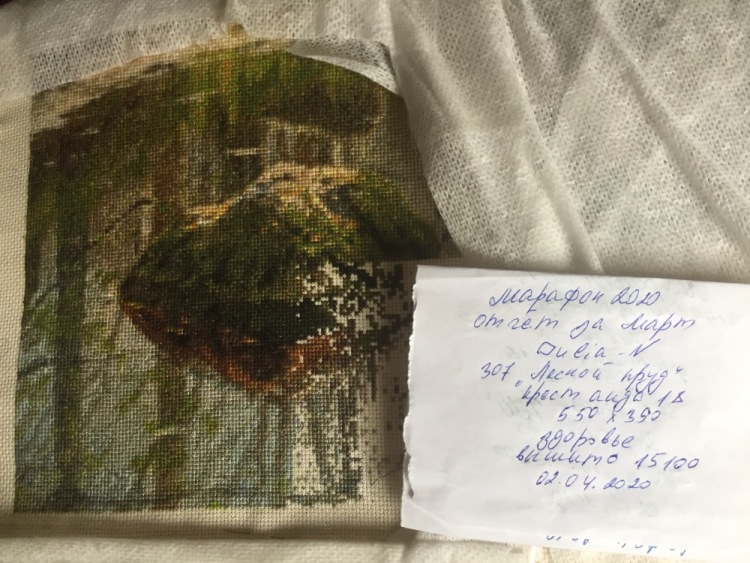 Марафон 2020
отчет за март
Julia-N
307 "Лесной пруд"
крест аида 18
550 x 390
здоровье
вышито 15100
02.04.2020